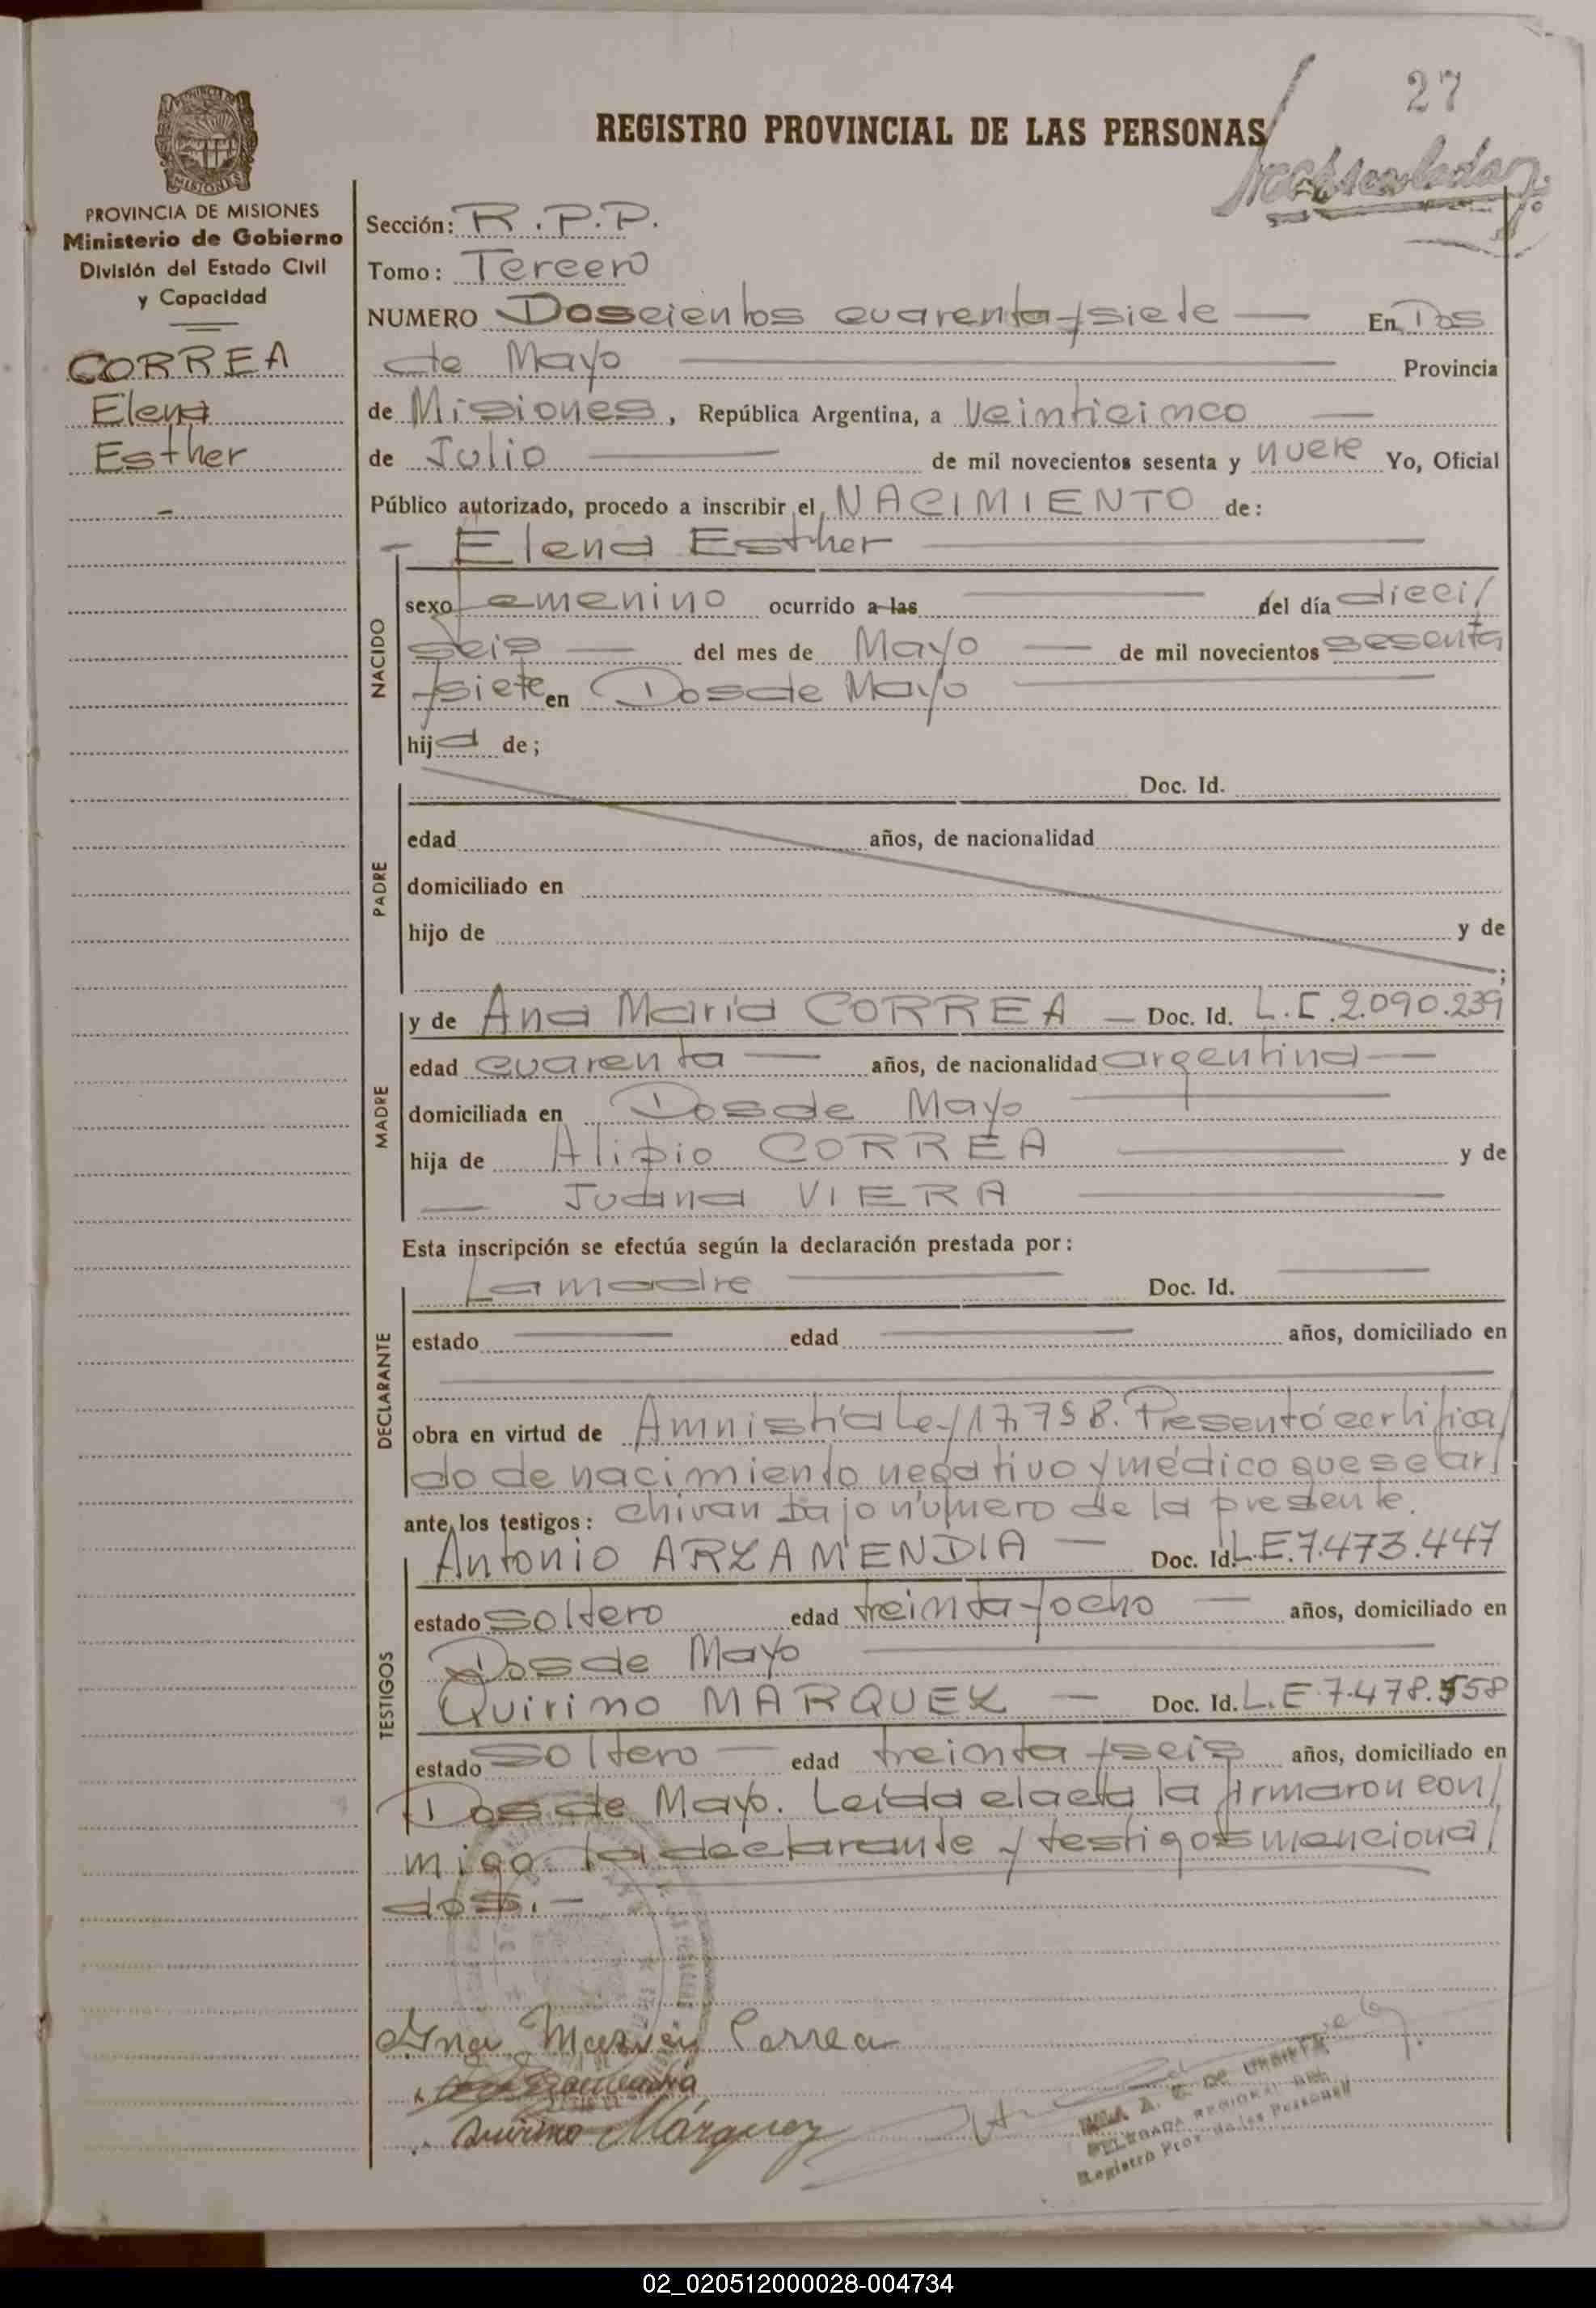 27
REGISTRO PROVINCIAL DE LAS PERSONAS
MISIONES
PROVINCIA DE MISIONES
Ministerio de Gobierno
División del Estado Civil
y Capacidad
CORREA
Elena
Esther
Sección: R.P.P.
Tomo: Tercero
NUMERO Doscientos cuarenta y siete En Dos
de Mayo Provincia
de Misiones, República Argentina, a Veinticinco
de Julio de mil novecientos sesenta y nueve Yo, Oficial
Público autorizado, procedo a inscribir el NACIMIENTO de:
- Elena Esther
NACIDO
sexo femenino ocurrido a las del día dieci/
seis del mes de Mayo de mil novecientos sesenta
y siete en Dos de Mayo
hija de;
PADRE
Doc. Id.
edad años, de nacionalidad
domiciliado en
hijo de y de
;
MADRE
y de Ana María CORREA — Doc. Id. L.C. 2.090.239
edad cuarenta — años, de nacionalidad argentina —
domiciliada en Dos de Mayo
hija de Alipio CORREA y de
— Juana VIERA
Esta inscripción se efectúa según la declaración prestada por:
DECLARANTE
La madre Doc. Id.
estado edad años, domiciliado en
obra en virtud de Amnistía Ley 17.758. Presentó certifica/
do de nacimiento negativo y médico que se ar/
ante los testigos: chivan bajo número de la presente.
TESTIGOS
Antonio ARZAMENDIA — Doc. Id. L.E. 7.473.447
estado soltero edad treinta y ocho — años, domiciliado en
Dos de Mayo
Quirino MARQUEZ — Doc. Id. L.E. 7.478.558
estado soltero — edad treinta y seis años, domiciliado en
Dos de Mayo. Leída el acta la firmaron con/
migo la declarante y testigos menciona/
dos.-
Ana María Correa
Quirino Márquez
A. C. DE URRIETA
DELEGADA REGIONAL DEL
Registro Prov. de las Personas
02_020512000028-004734